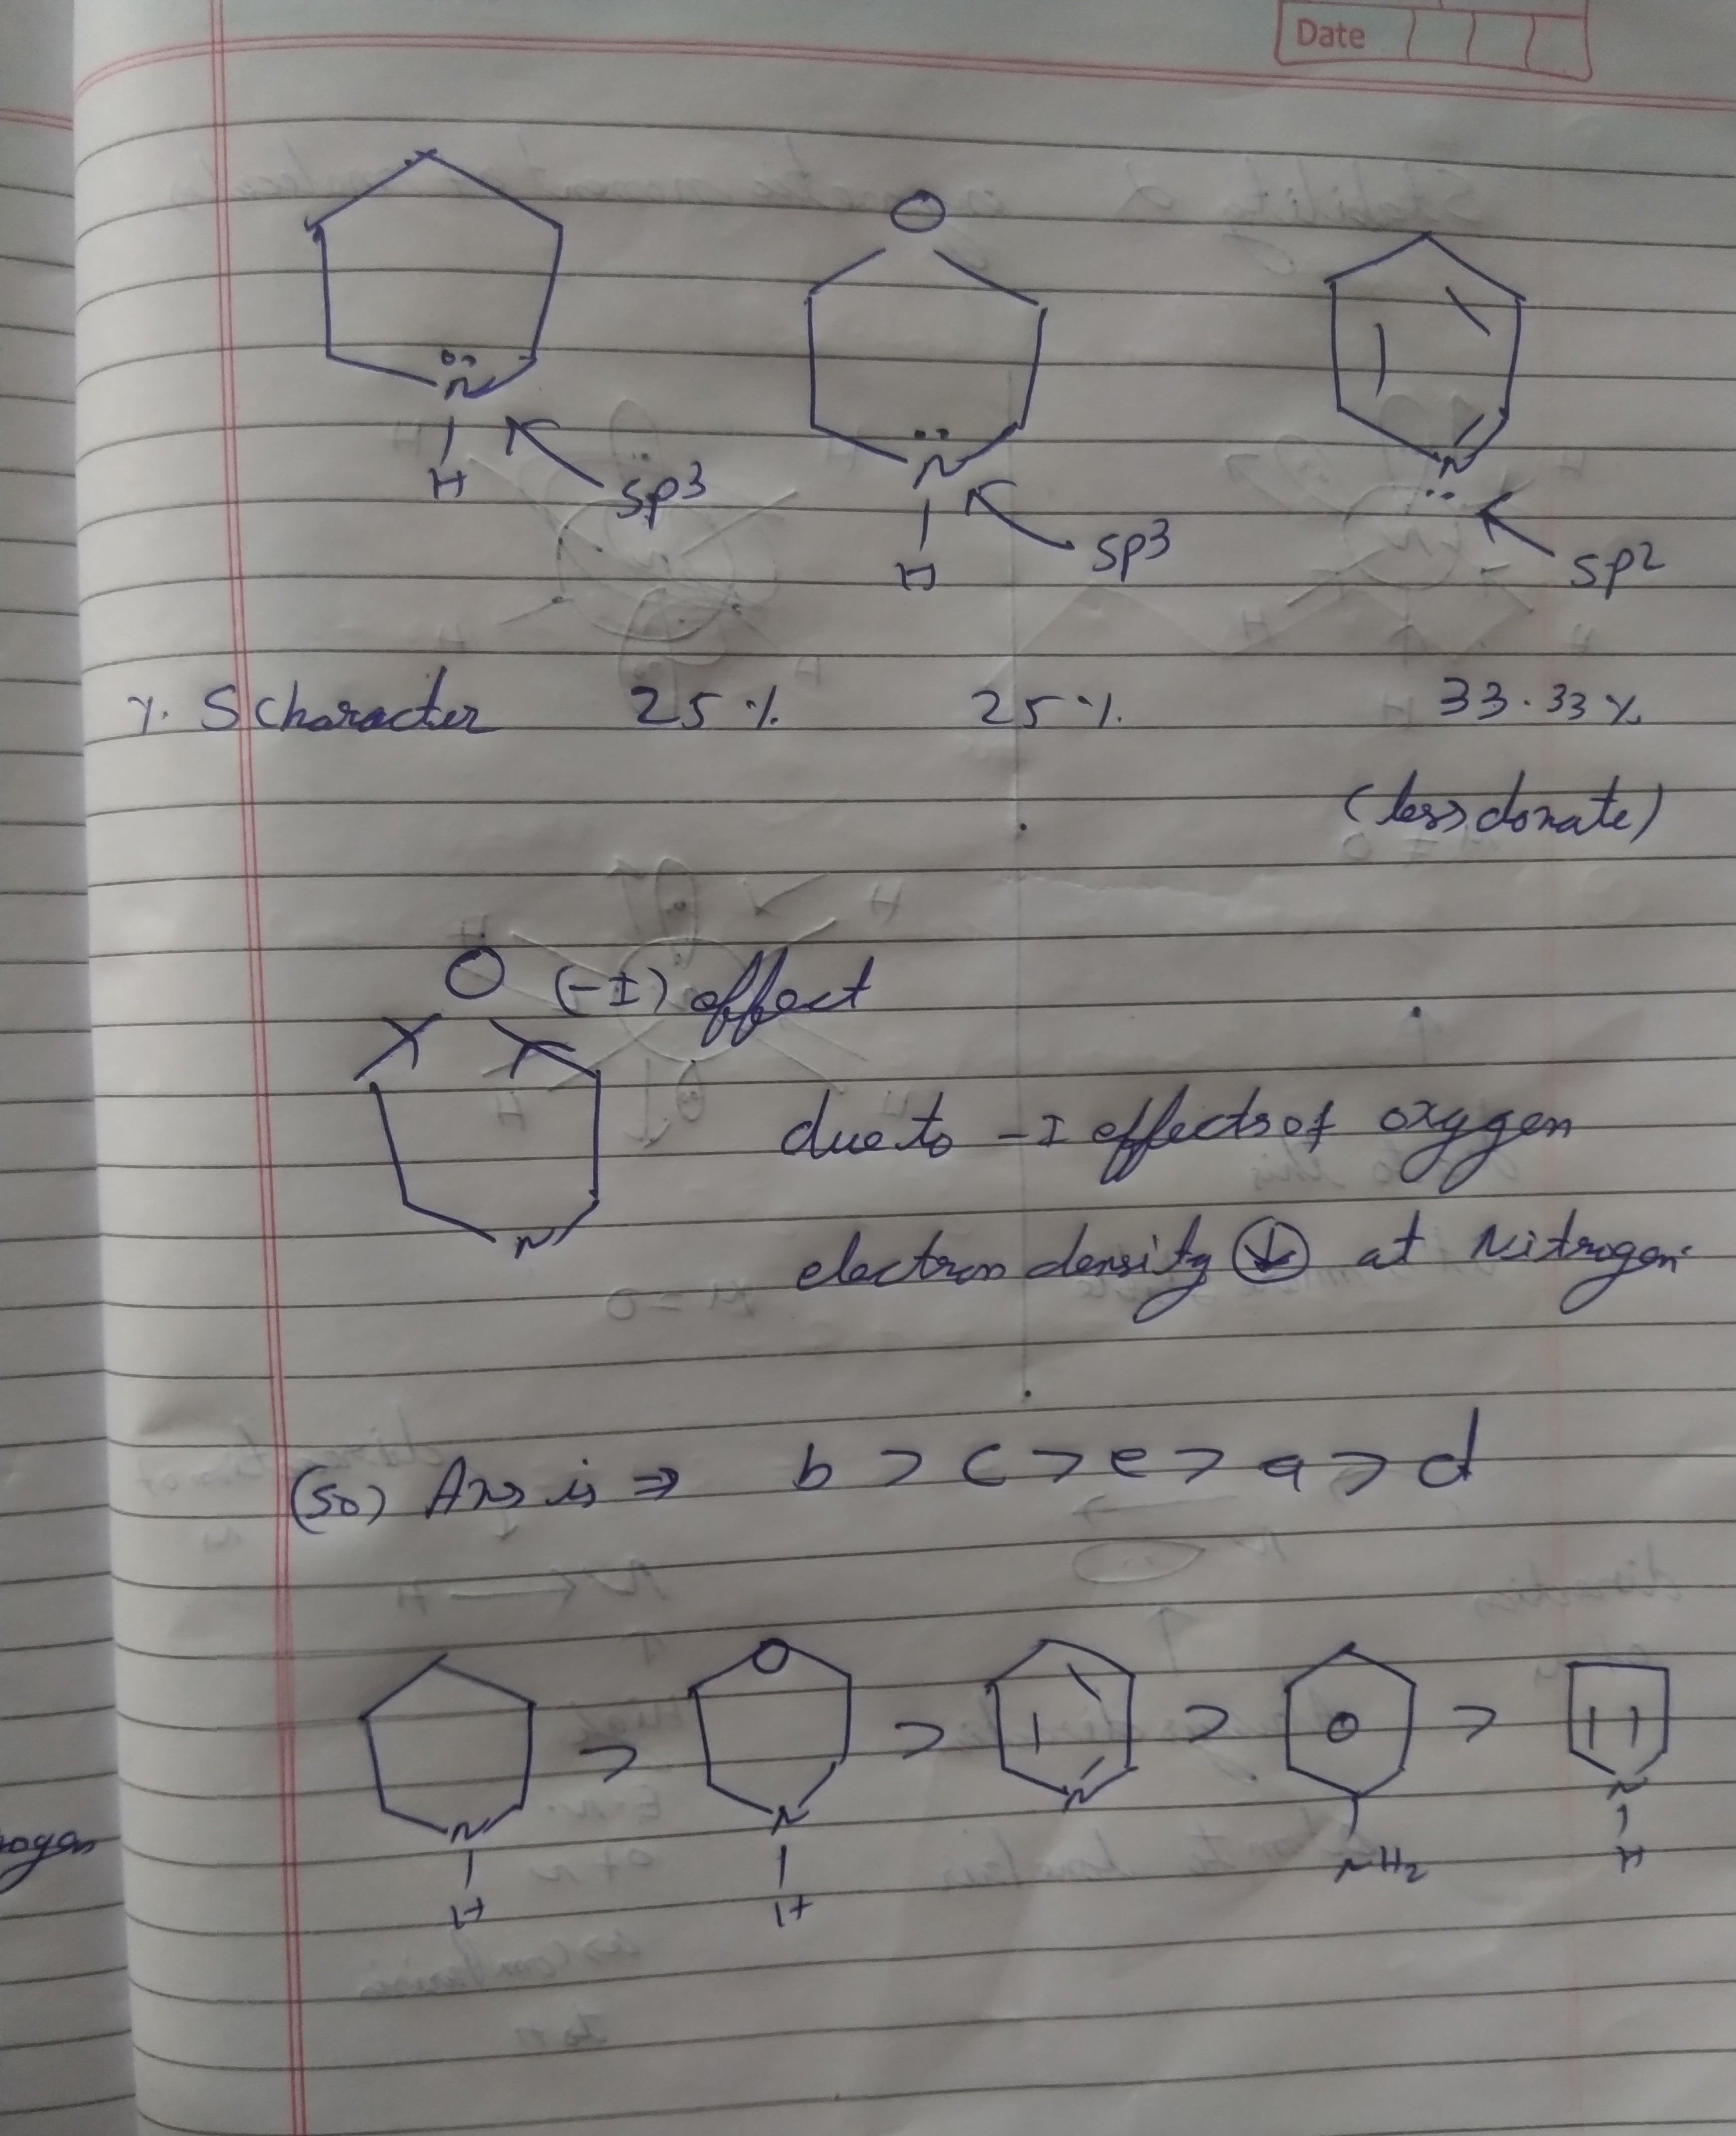 Date
O
N
H
sp3
N
H
sp3
N
sp2
%. S Character 25 % 25 %. 33.33 %
(less donate)
O (-I) effect
N
due to -I effects of oxygen
electron density ↓ at Nitrogen.
(So) Ans is ⇒ b > c > e > a > d
O
> > > >
N N N N
H H NH2 H
ogen